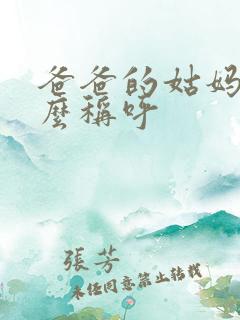 爸爸的姑妈
麼稱呼
張芳
未经同意禁止转载